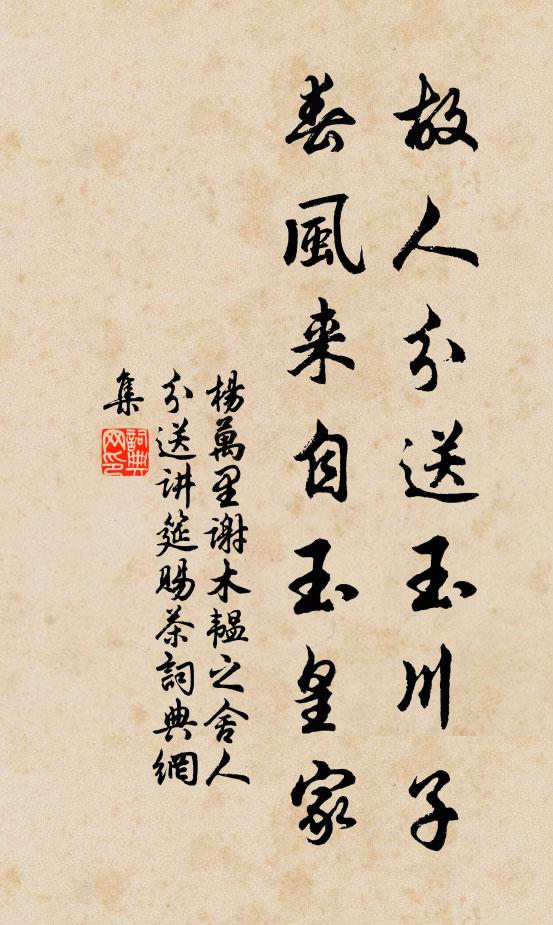 故人分送玉川子
春風来自玉皇家
楊萬里謝木韞之舍人
分送讲筵賜茶詞典網
集
詞典網印